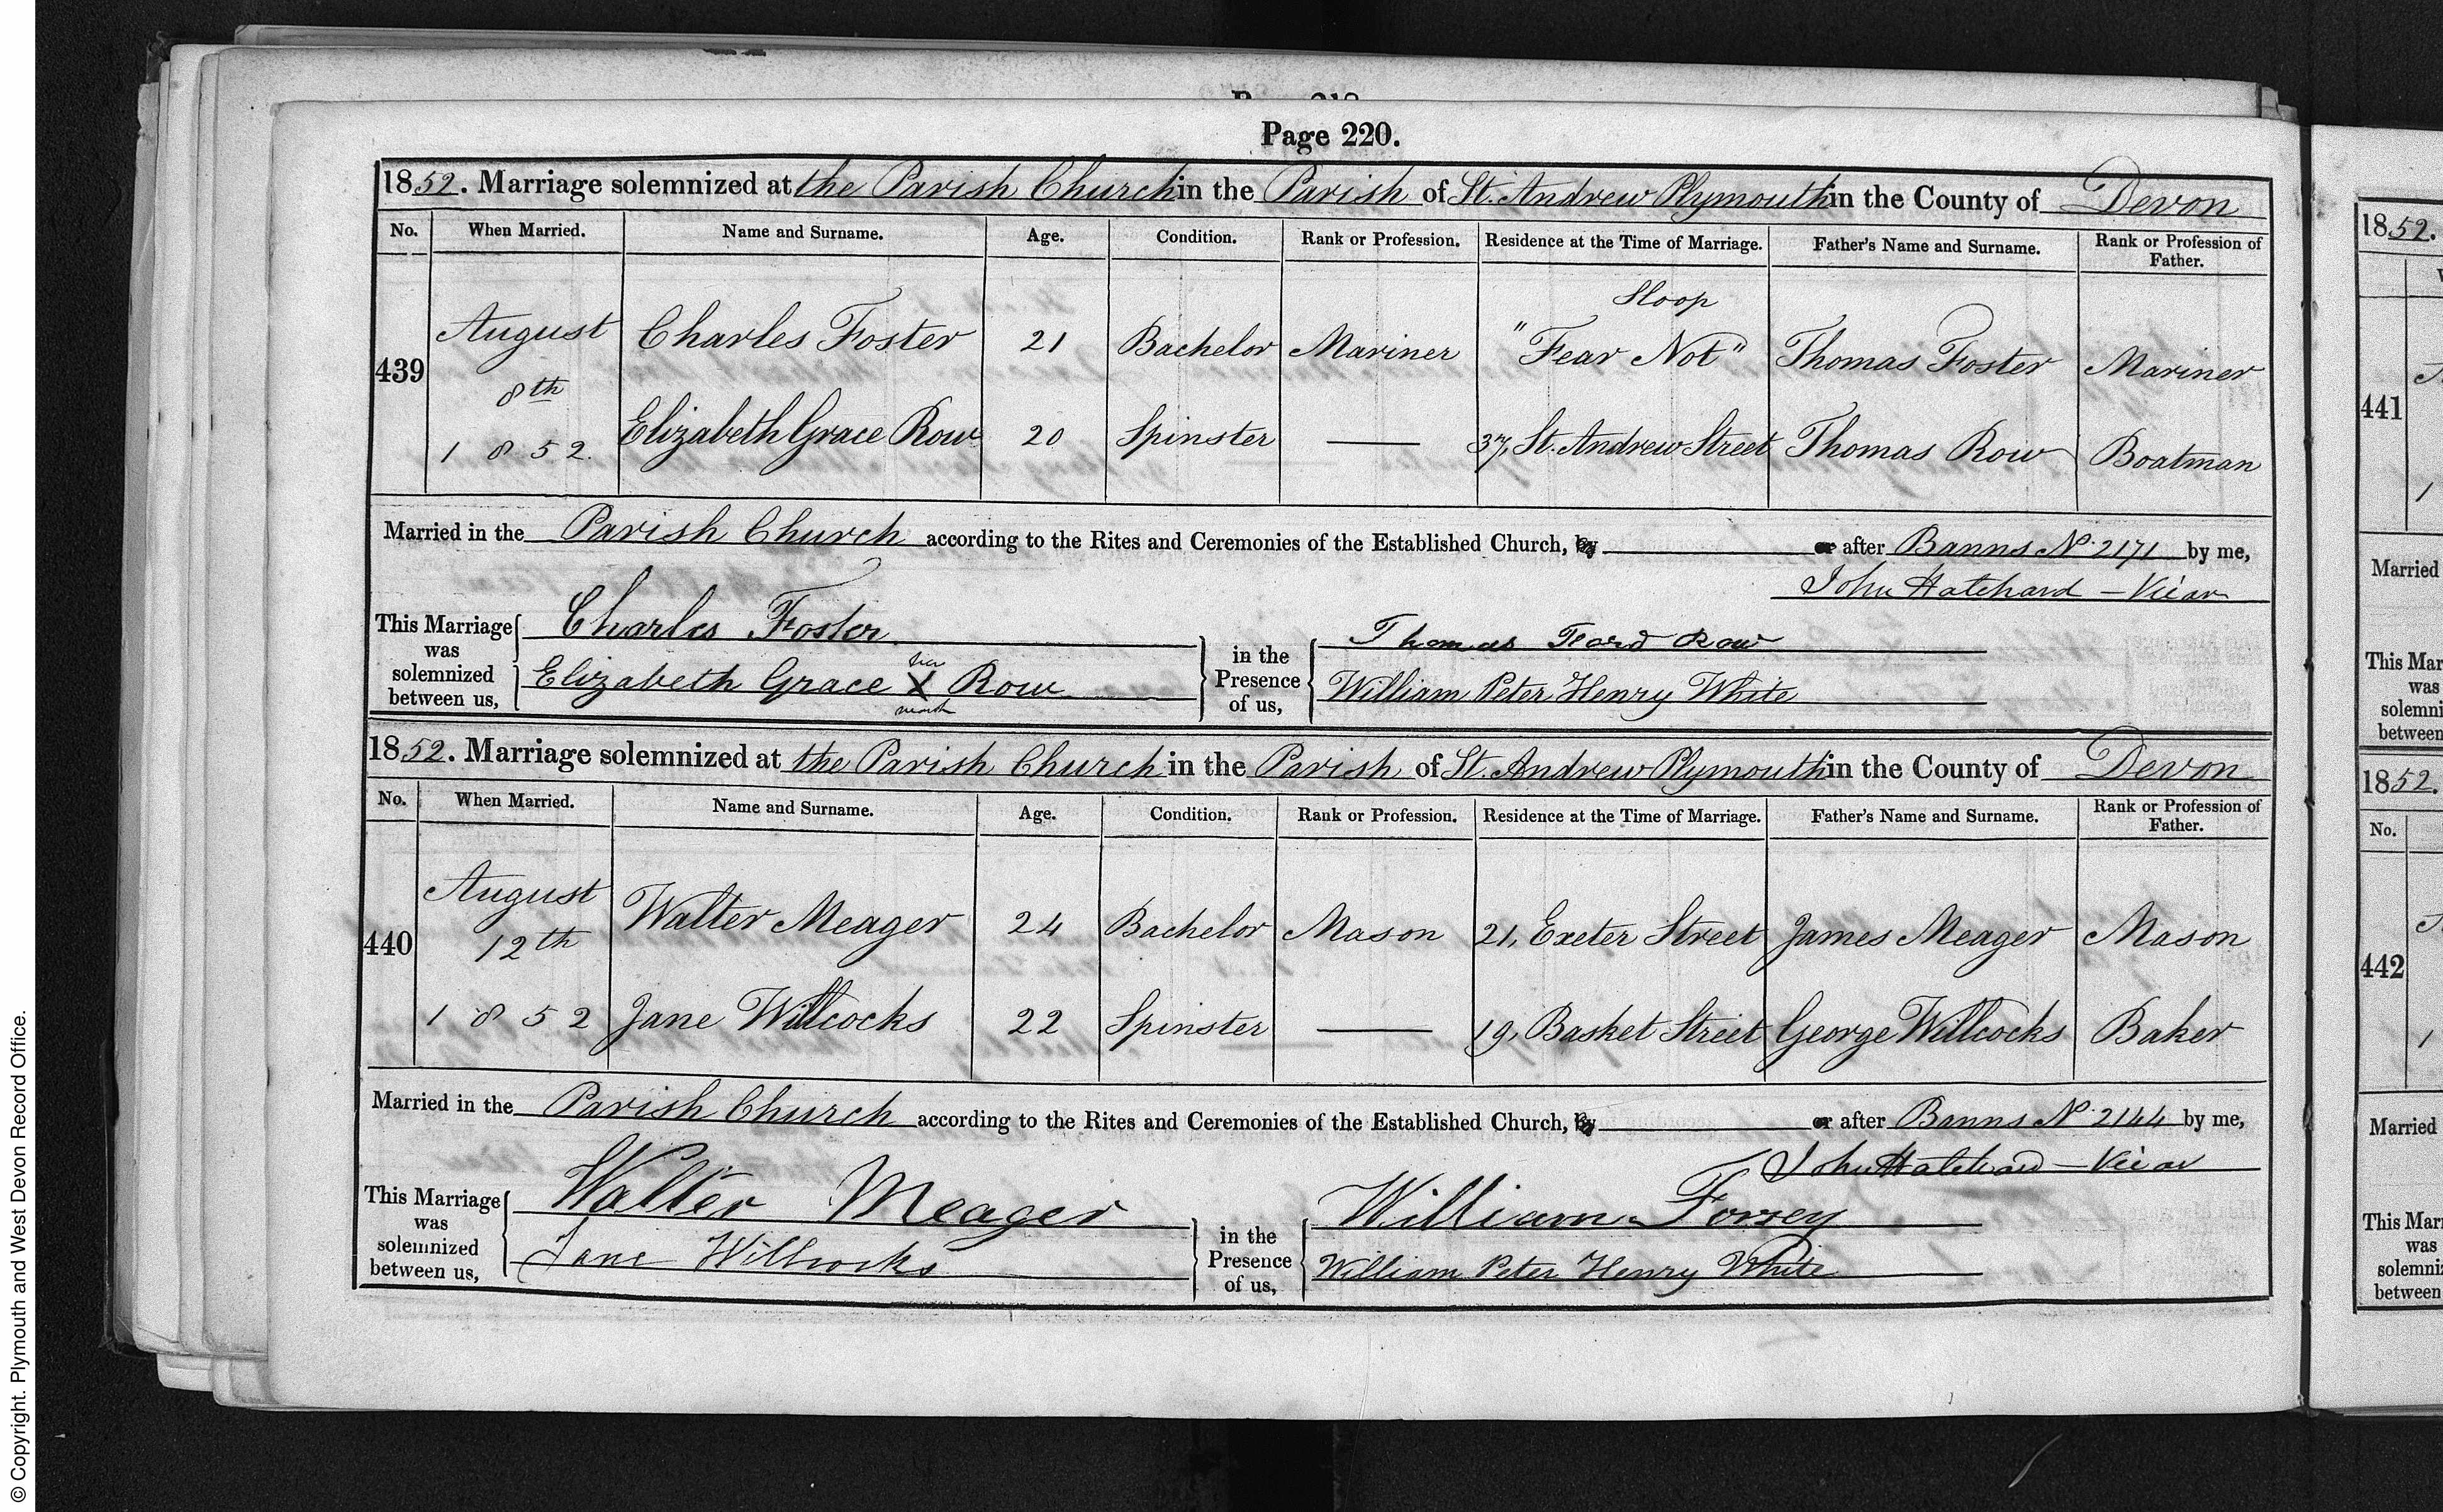 Page 220.
1852. Marriage solemnized at the Parish Church in the Parish of St. Andrew Plymouth in the County of Devon
No. When Married. Name and Surname. Age. Condition. Rank or Profession. Residence at the Time of Marriage. Father's Name and Surname. Rank or Profession of Father.
439 August 8th 1852. Charles Foster 21 Bachelor Mariner Sloop "Fear Not" Thomas Foster Mariner
Elizabeth Grace Row 20 Spinster — 37, St. Andrew Street Thomas Row Boatman
Married in the Parish Church according to the Rites and Ceremonies of the Established Church, by or after Banns No. 2171 by me,
John Hatchard – Vicar
This Marriage was solemnized between us, Charles Foster in the Presence of us, Thomas Ford Row
Elizabeth Grace her X mark Row William Peter Henry White
1852. Marriage solemnized at the Parish Church in the Parish of St. Andrew Plymouth in the County of Devon
No. When Married. Name and Surname. Age. Condition. Rank or Profession. Residence at the Time of Marriage. Father's Name and Surname. Rank or Profession of Father.
440 August 12th 1852 Walter Meager 24 Bachelor Mason 21, Exeter Street James Meager Mason
Jane Willcocks 22 Spinster — 19, Basket Street George Willcocks Baker
Married in the Parish Church according to the Rites and Ceremonies of the Established Church, by or after Banns No. 2144 by me,
John Hatchard – Vicar
This Marriage was solemnized between us, Walter Meager in the Presence of us, William
Jane Willcocks William Peter Henry White
1852.
441
Married
This Mar
was
solemni
between
1852.
No.
442
1
Married
This Mar
was
solemniz
between
© Copyright. Plymouth and West Devon Record Office.